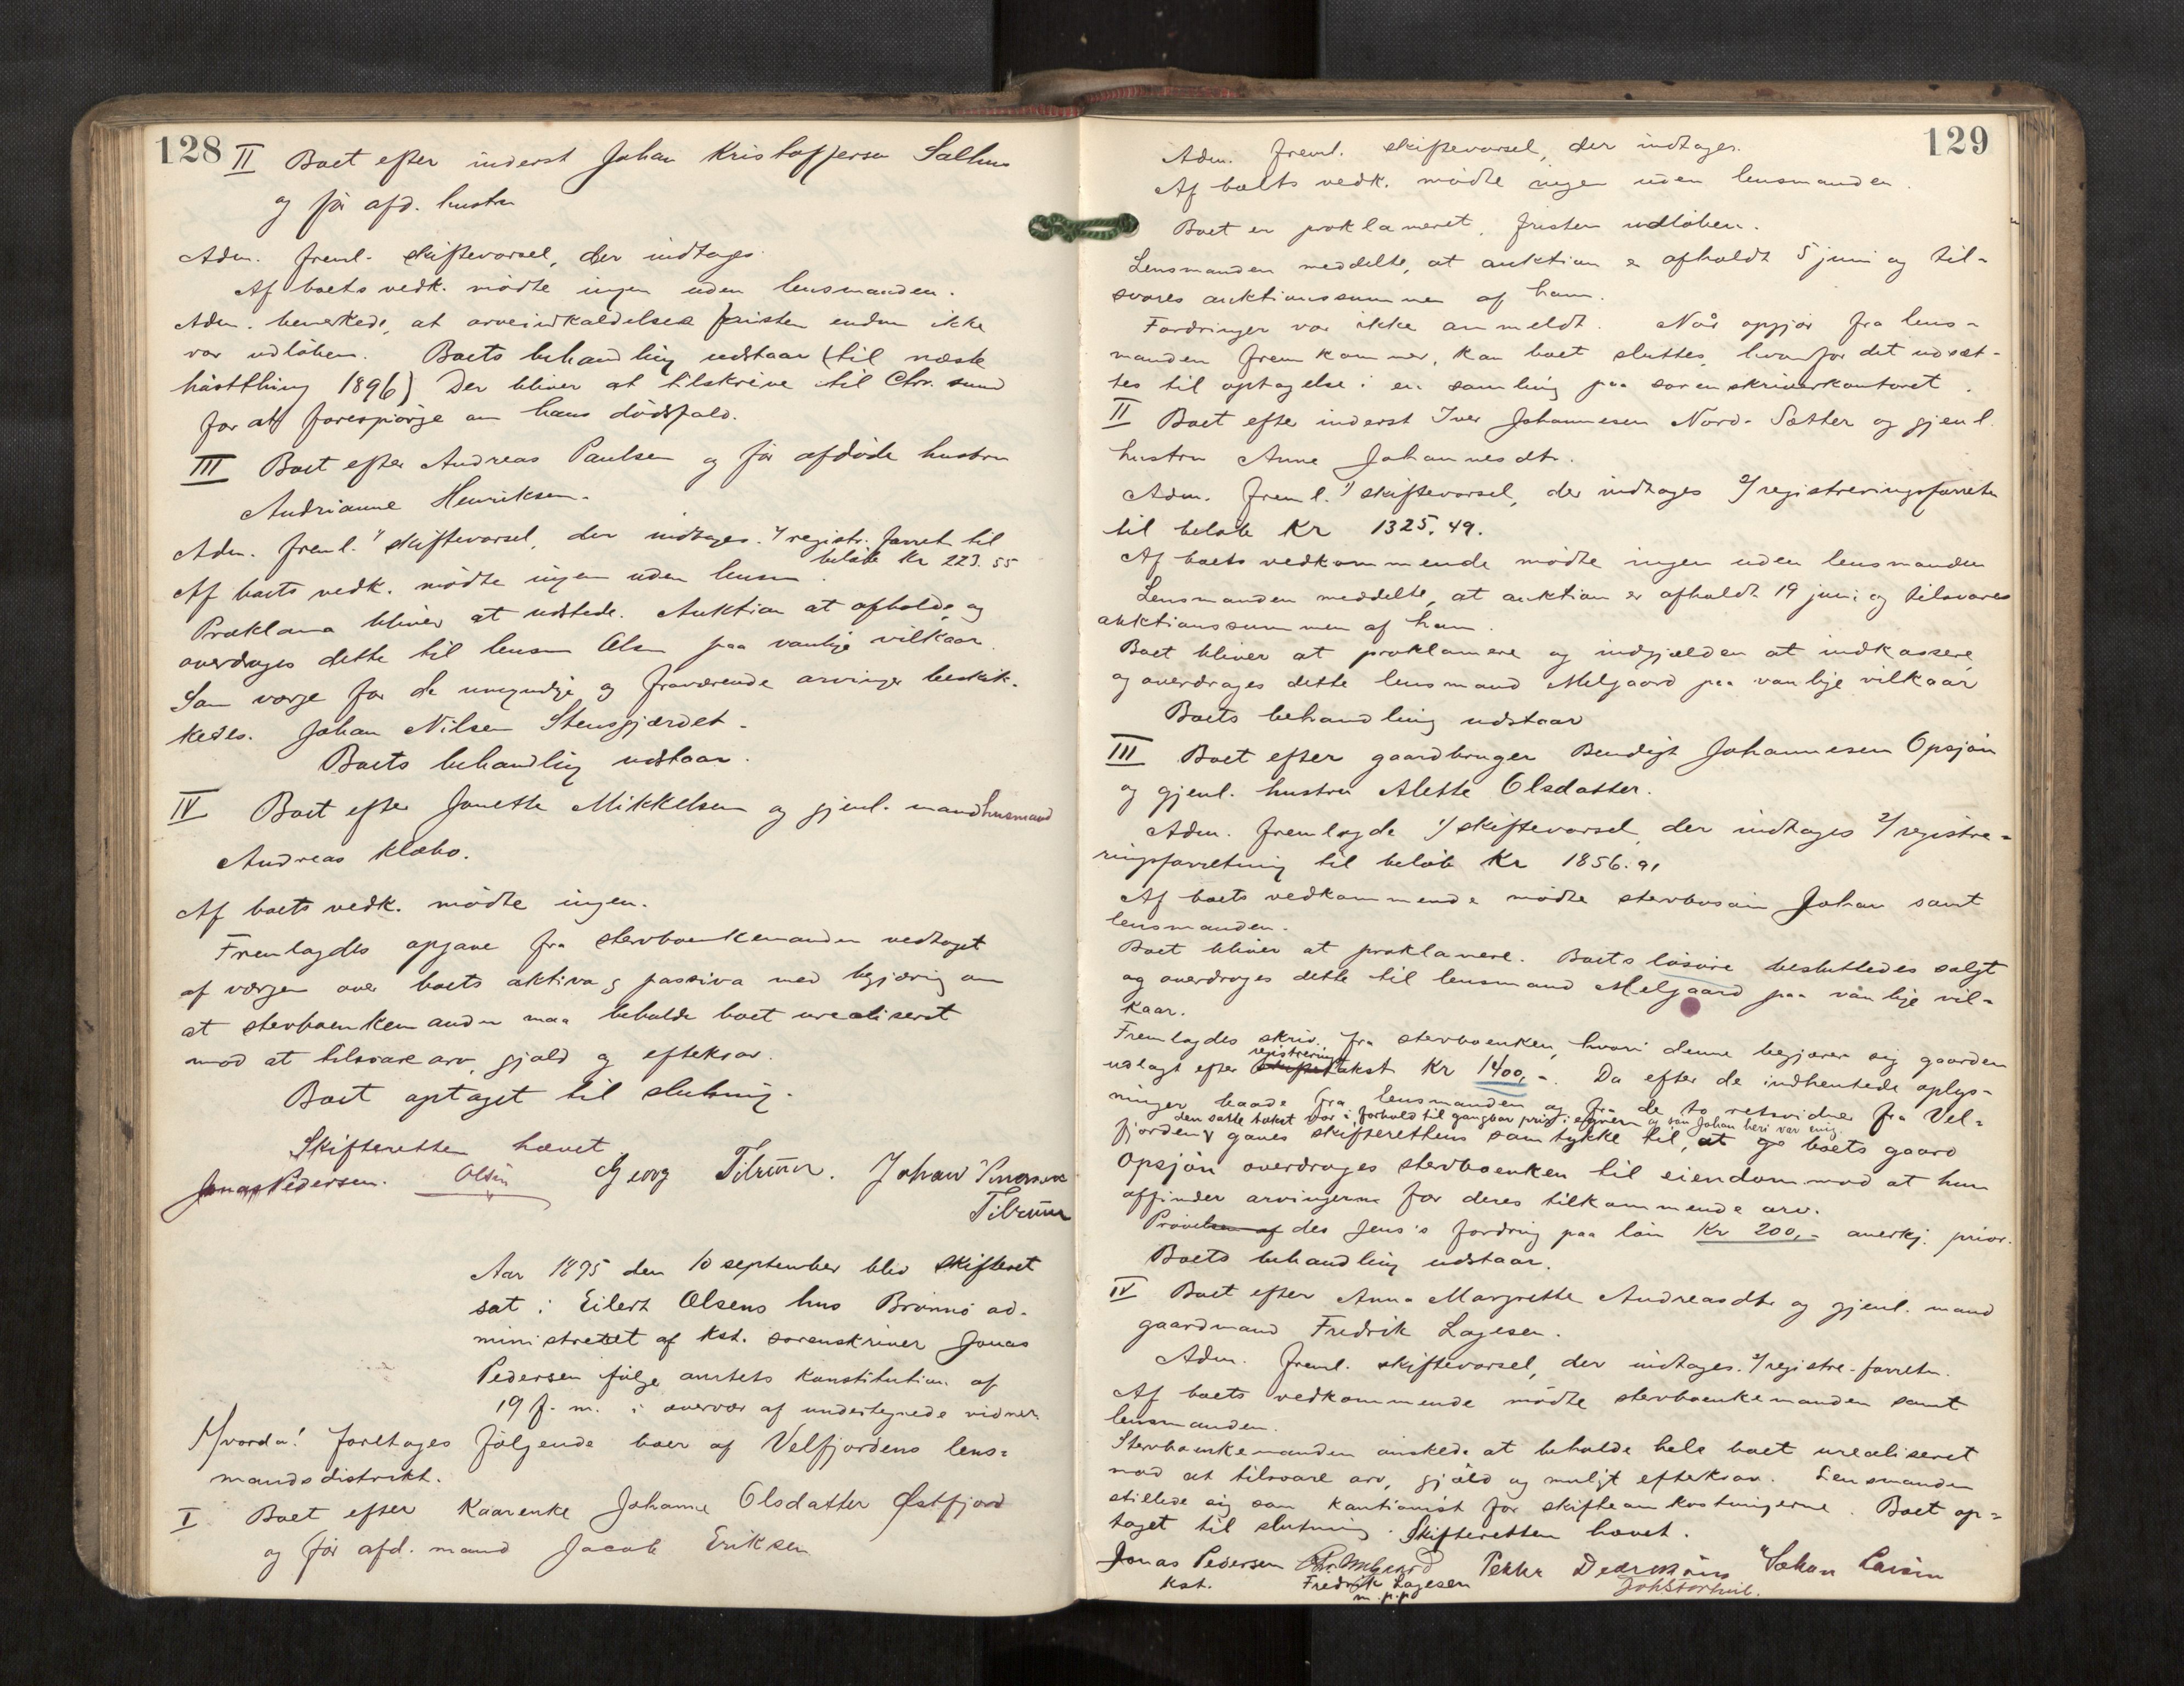 128
II Boet efter inderst Johan Kristoffersen Salhus
og før afd. hustru
Adm. freml. skiftevarsel, der indtages.
Af boets vedk. mødte ingen uden lensmanden.
Adm. bemerkede, at arveindkaldelses fristen endnu ikke
var udløben. Boets behandling udstaar (til næste
høstthing 1896) Der bliver at tilskrive til Chr. sund
for at forespørge om hans dødsfald.
III Boet efter Andreas Paulsen og før afdøde hustru
Andrianne Henriksen.
Adm. freml. 1/ skiftevarsel, der indtages. 2/ registr. forret. til
beløb Kr 223.55
Af boets vedk. mødte ingen uden lensm.
Proklama bliver at udstede. Auktion at afholde, og
overdrages dette til lensm Olsen paa vanlige vilkaar.
Som værge for de umyndige og fraværende arvinger beskik-
kedes Johan Nilsen Stensgjærdet.
Boets behandling udstaar.
IV Boet efter Jonette Mikkelsen og gjenl. mand husmand
Andreas Klæbo.
Af boets vedk. mødte ingen.
Fremlagdes opgave fra stervboenkemanden vedtaget
af værgen over boets aktiva & passiva med begjæring om
at stervboenkemanden maa beholde boet urealiseret
mod at tilsvare arv, gjæld og efterkrav.
Boet optaget til slutning.
Skifteretten hævet
Jonas Pedersen. Olsen Georg Tilrum. Johan
Tilrum
Aar 1895 den 10 september blev skifteret
sat i Eilert Olsens hus Brønnø ad-
ministreret af kst. sorenskriver Jonas
Pedersen ifølge amtets konstitution af
19 f. m. i overvær af undertegnede vidner
Hvorda! foretages følgende boer af Velfjordens lens-
mandsdistrikt.
I Boet efter Kaarenke Johanne Olsdatter Østfjord
og før afd. mand Jacob Eriksen
129
Adm. freml. skiftevarsel, der indtages.
Af boets vedk. mødte ingen uden lensmanden.
Boet er proklameret, fristen udløben.
Lensmanden meddelte, at auktion er afholdt 5 juni og til-
svares auktionssummen af ham.
Fordringer var ikke anmeldt. Når opgjør fra lens-
manden fremkommer, kan boet sluttes, hvorfor det udsæt-
tes til optagelse i en samling paa sorenskriverkontoret.
II Boet efter inderst Iver Johannesen Nord-Sætter og gjenl.
hustru Anne Johannesdtr.
Adm. freml. 1/ skiftevarsel, der indtages 2/ registreringsforretn
til beløb Kr 1325.49.
Af boets vedkommende mødte ingen uden lensmanden
Lensmanden meddelte, at auktion er afholdt 19 juni og tilsvares
auktionssummen af ham.
Boet bliver at proklamere og indgjælden at indkassere
og overdrages dette lensmand Melgaard paa vanlige vilkaar
Boets behandling udstaar
III Boet efter gaardbruger Bendigt Johannesen Opsjøn
og gjenl. hustru Alette Olsdatter.
Adm. fremlagde 1/ skiftevarsel, der indtages 2/ registre-
ringsforretning til beløb Kr 1856.91
Af boets vedkommende mødte stervbosøn Johan samt
lensmanden.
Boet bliver at proklamere. Boets løsøre besluttedes solgt
og overdrages dette til lensmand Melgaard paa vånlige vil-
kaar.
Fremlagdes skriv. fra stervboenken, hvori denne begjærer sig gaarden
udlagt efter registrerings takst Kr 1400,-. Da efter de indhentede oplys-
ninger baade fra lensmanden og fra de to retsvidner fra Vel-
den satte takst var i forhold til gangbar pris i egnen og søn Johan heri var enig
fjorden gaves skifterettens samtykke til, at boets gaard
Opsjøn overdrages stervboenken til eiendom mod at hun
affinder arvingerne for deres tilkommende arv.
Prøvelsen af des Jens's fordring paa løn Kr 200,- anerkj. prior.
Boets behandling udstaar.
IV Boet efter Anna Margrethe Andreasdtr og gjenl. mand
gaardmand Fredrik Lagesen.
Adm. freml. skiftevarsel, der indtages. 2/ registre-forretn.
Af boets vedkommende mødte stervboenkemanden samt
lensmanden.
Stervboenkemanden ønskede at beholde hele boet urealiseret
mod at tilsvare arv, gjæld og muligt efterkrav. Lensmanden
stillede sig som kautionist for skifteomkostningerne. Boet op-
taget til slutning. Skifteretten hævet.
Jonas Pedersen Melgaard Petter Johan Larsen
kst. Fredrik Lagesen
m. p. p.